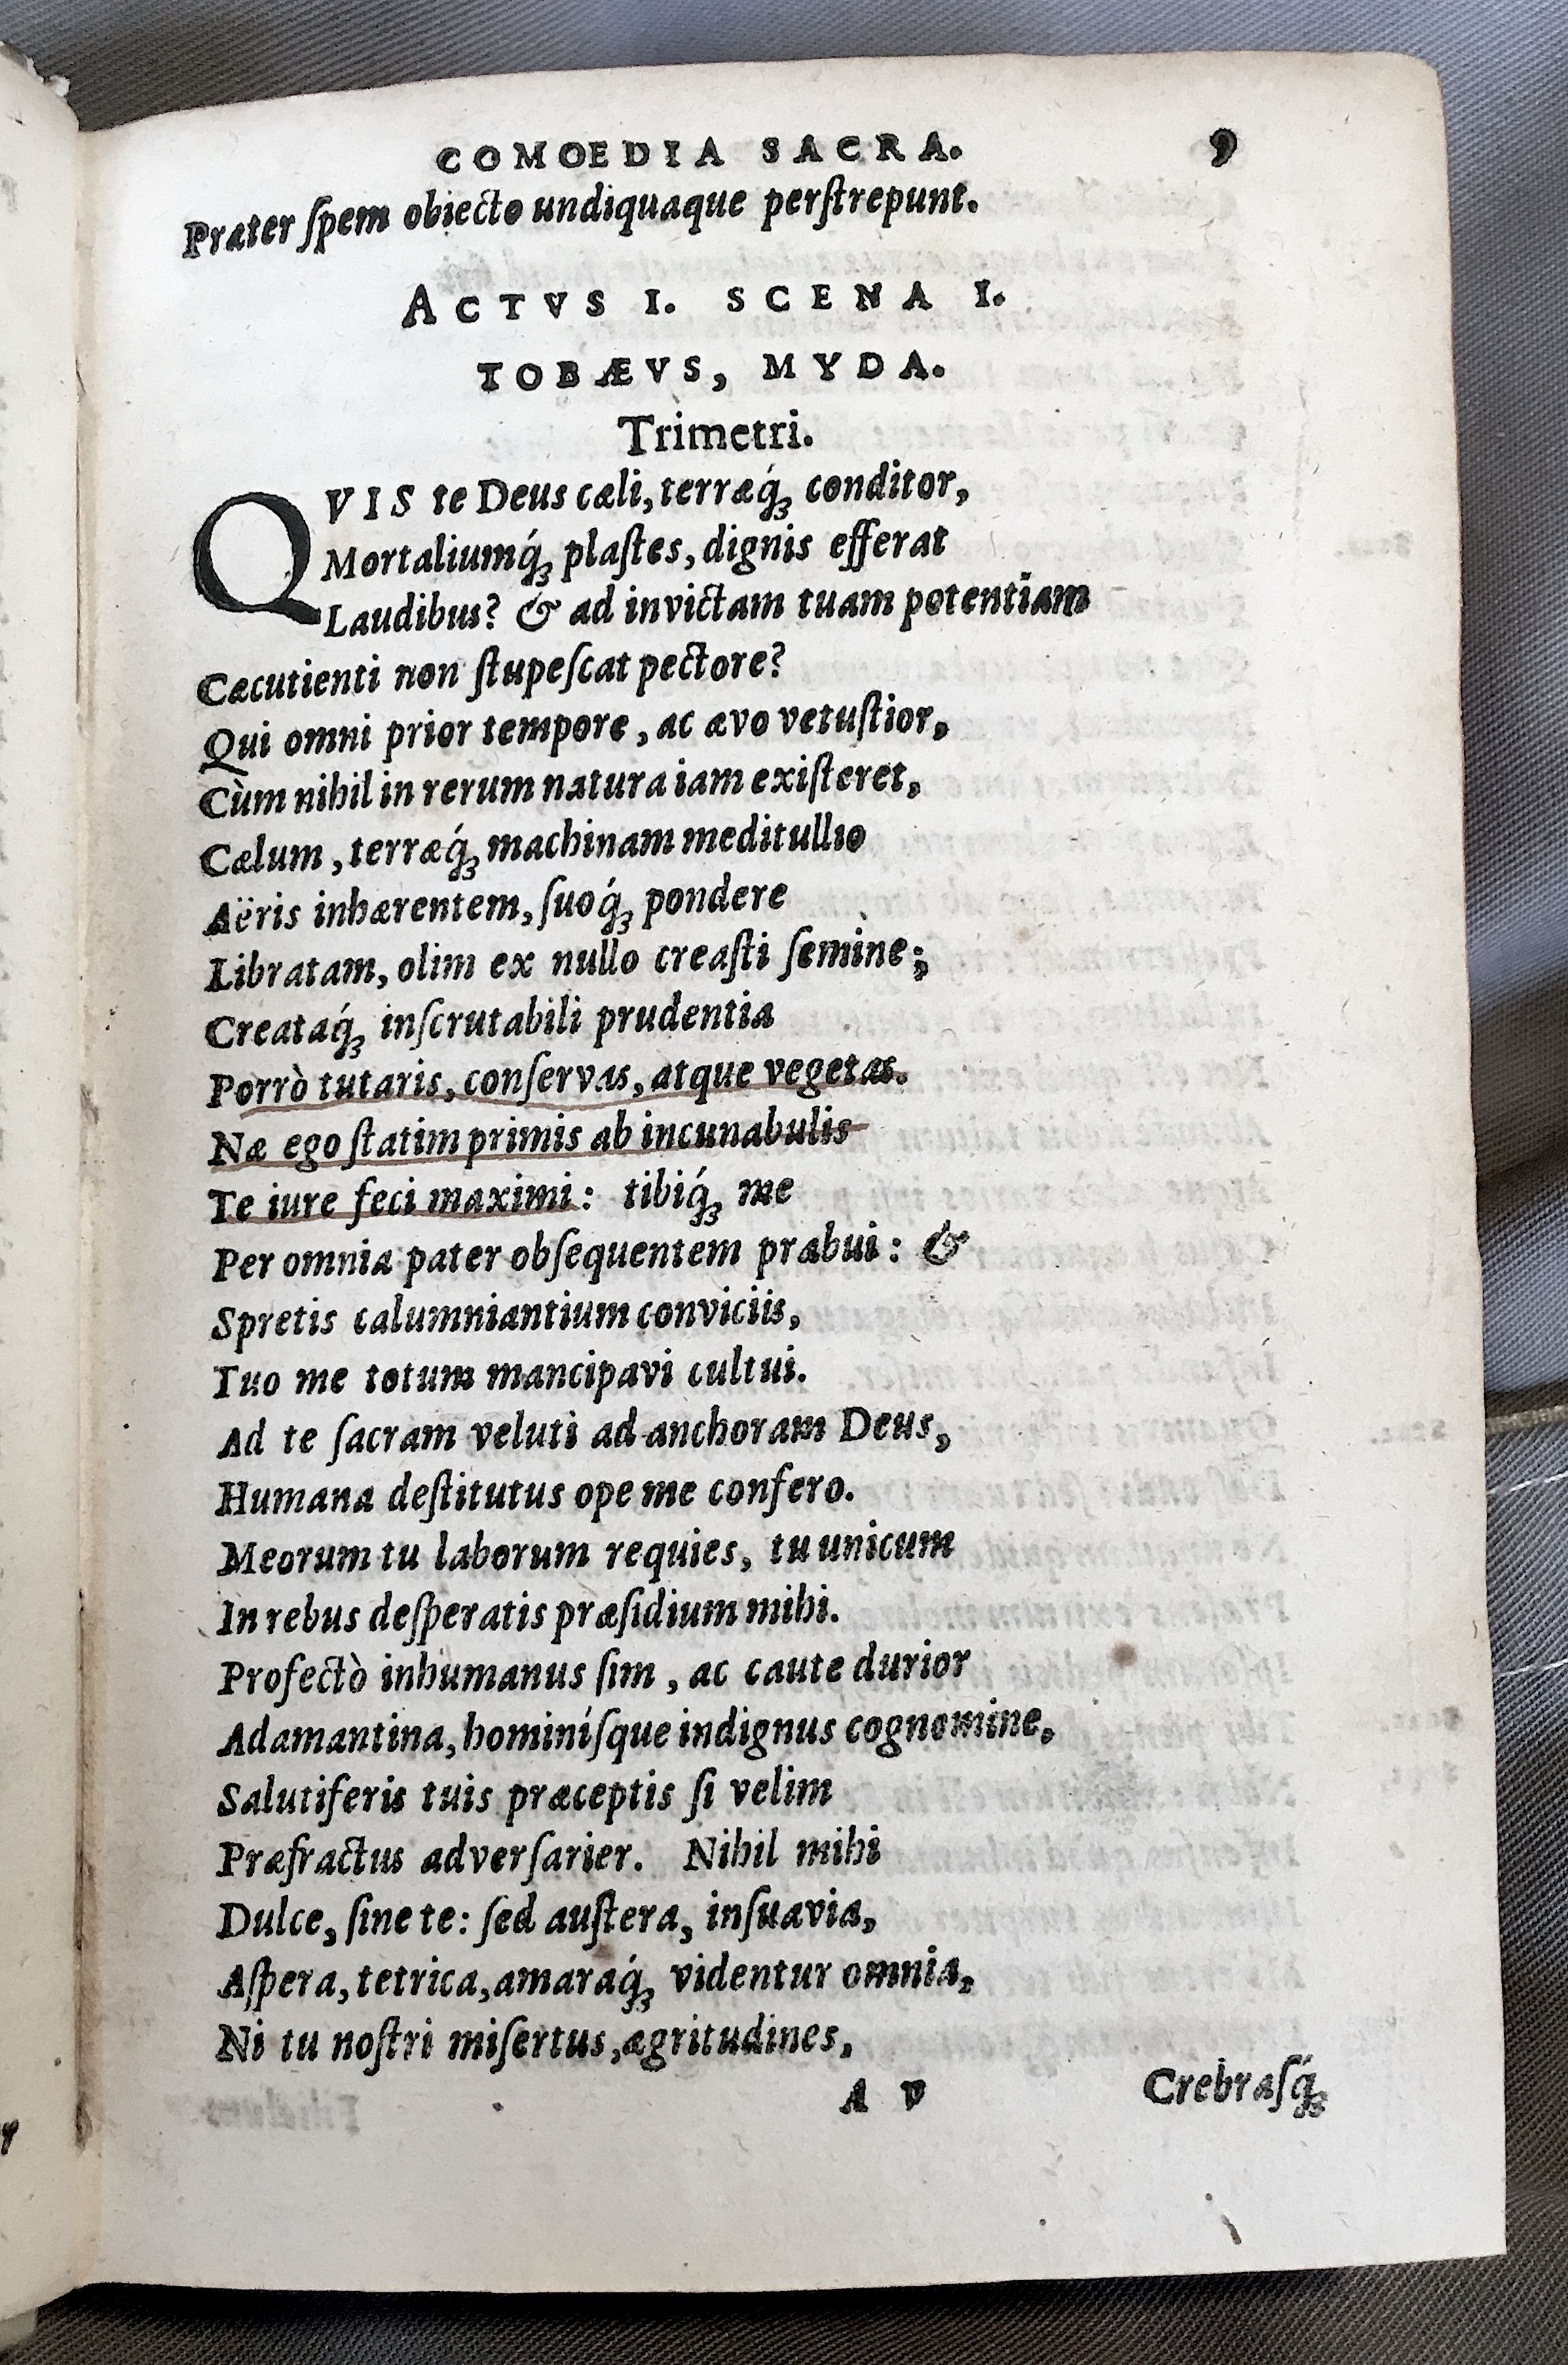 COMOEDIA SACRA. 9
Præter ſpem obiecto undiquaque perſtrepunt.
ACTVS I. SCENA I.
TOBÆVS, MYDA.
Trimetri.
QVIS te Deus cæli, terræq́ꝫ conditor,
Mortaliumq́ꝫ plaſtes, dignis efferat
Laudibus? & ad invictam tuam potentiam
Cæcutienti non ſtupeſcat pectore?
Qui omni prior tempore, ac ævo vetuſtior,
Cùm nihil in rerum natura iam exiſteret,
Cælum, terræq́ꝫ machinam meditullio
Aëris inhærentem, ſuoq́ꝫ pondere
Libratam, olim ex nullo creaſti ſemine;
Creataq́ꝫ inſcrutabili prudentia
Porrò tutaris, conſervas, atque vegetas.
Næ ego ſtatim primis ab incunabulis
Te iure feci maximi: tibiq́ꝫ me
Per omnia pater obſequentem præbui: &
Spretis calumniantium conviciis,
Tuo me totum mancipavi cultui.
Ad te ſacram veluti ad anchoram Deus,
Humana deſtitutus ope me confero.
Meorum tu laborum requies, tu unicum
In rebus deſperatis præſidium mihi.
Profectò inhumanus ſim, ac caute durior
Adamantina, hominíſque indignus cognomine,
Salutiferis tuis præceptis ſi velim
Præfractus adverſarier. Nihil mihi
Dulce, ſine te: ſed auſtera, inſuavia,
Aſpera, tetrica, amaraq́ꝫ videntur omnia,
Ni tu noſtri miſertus, ægritudines,
A v Crebraſq́ꝫ